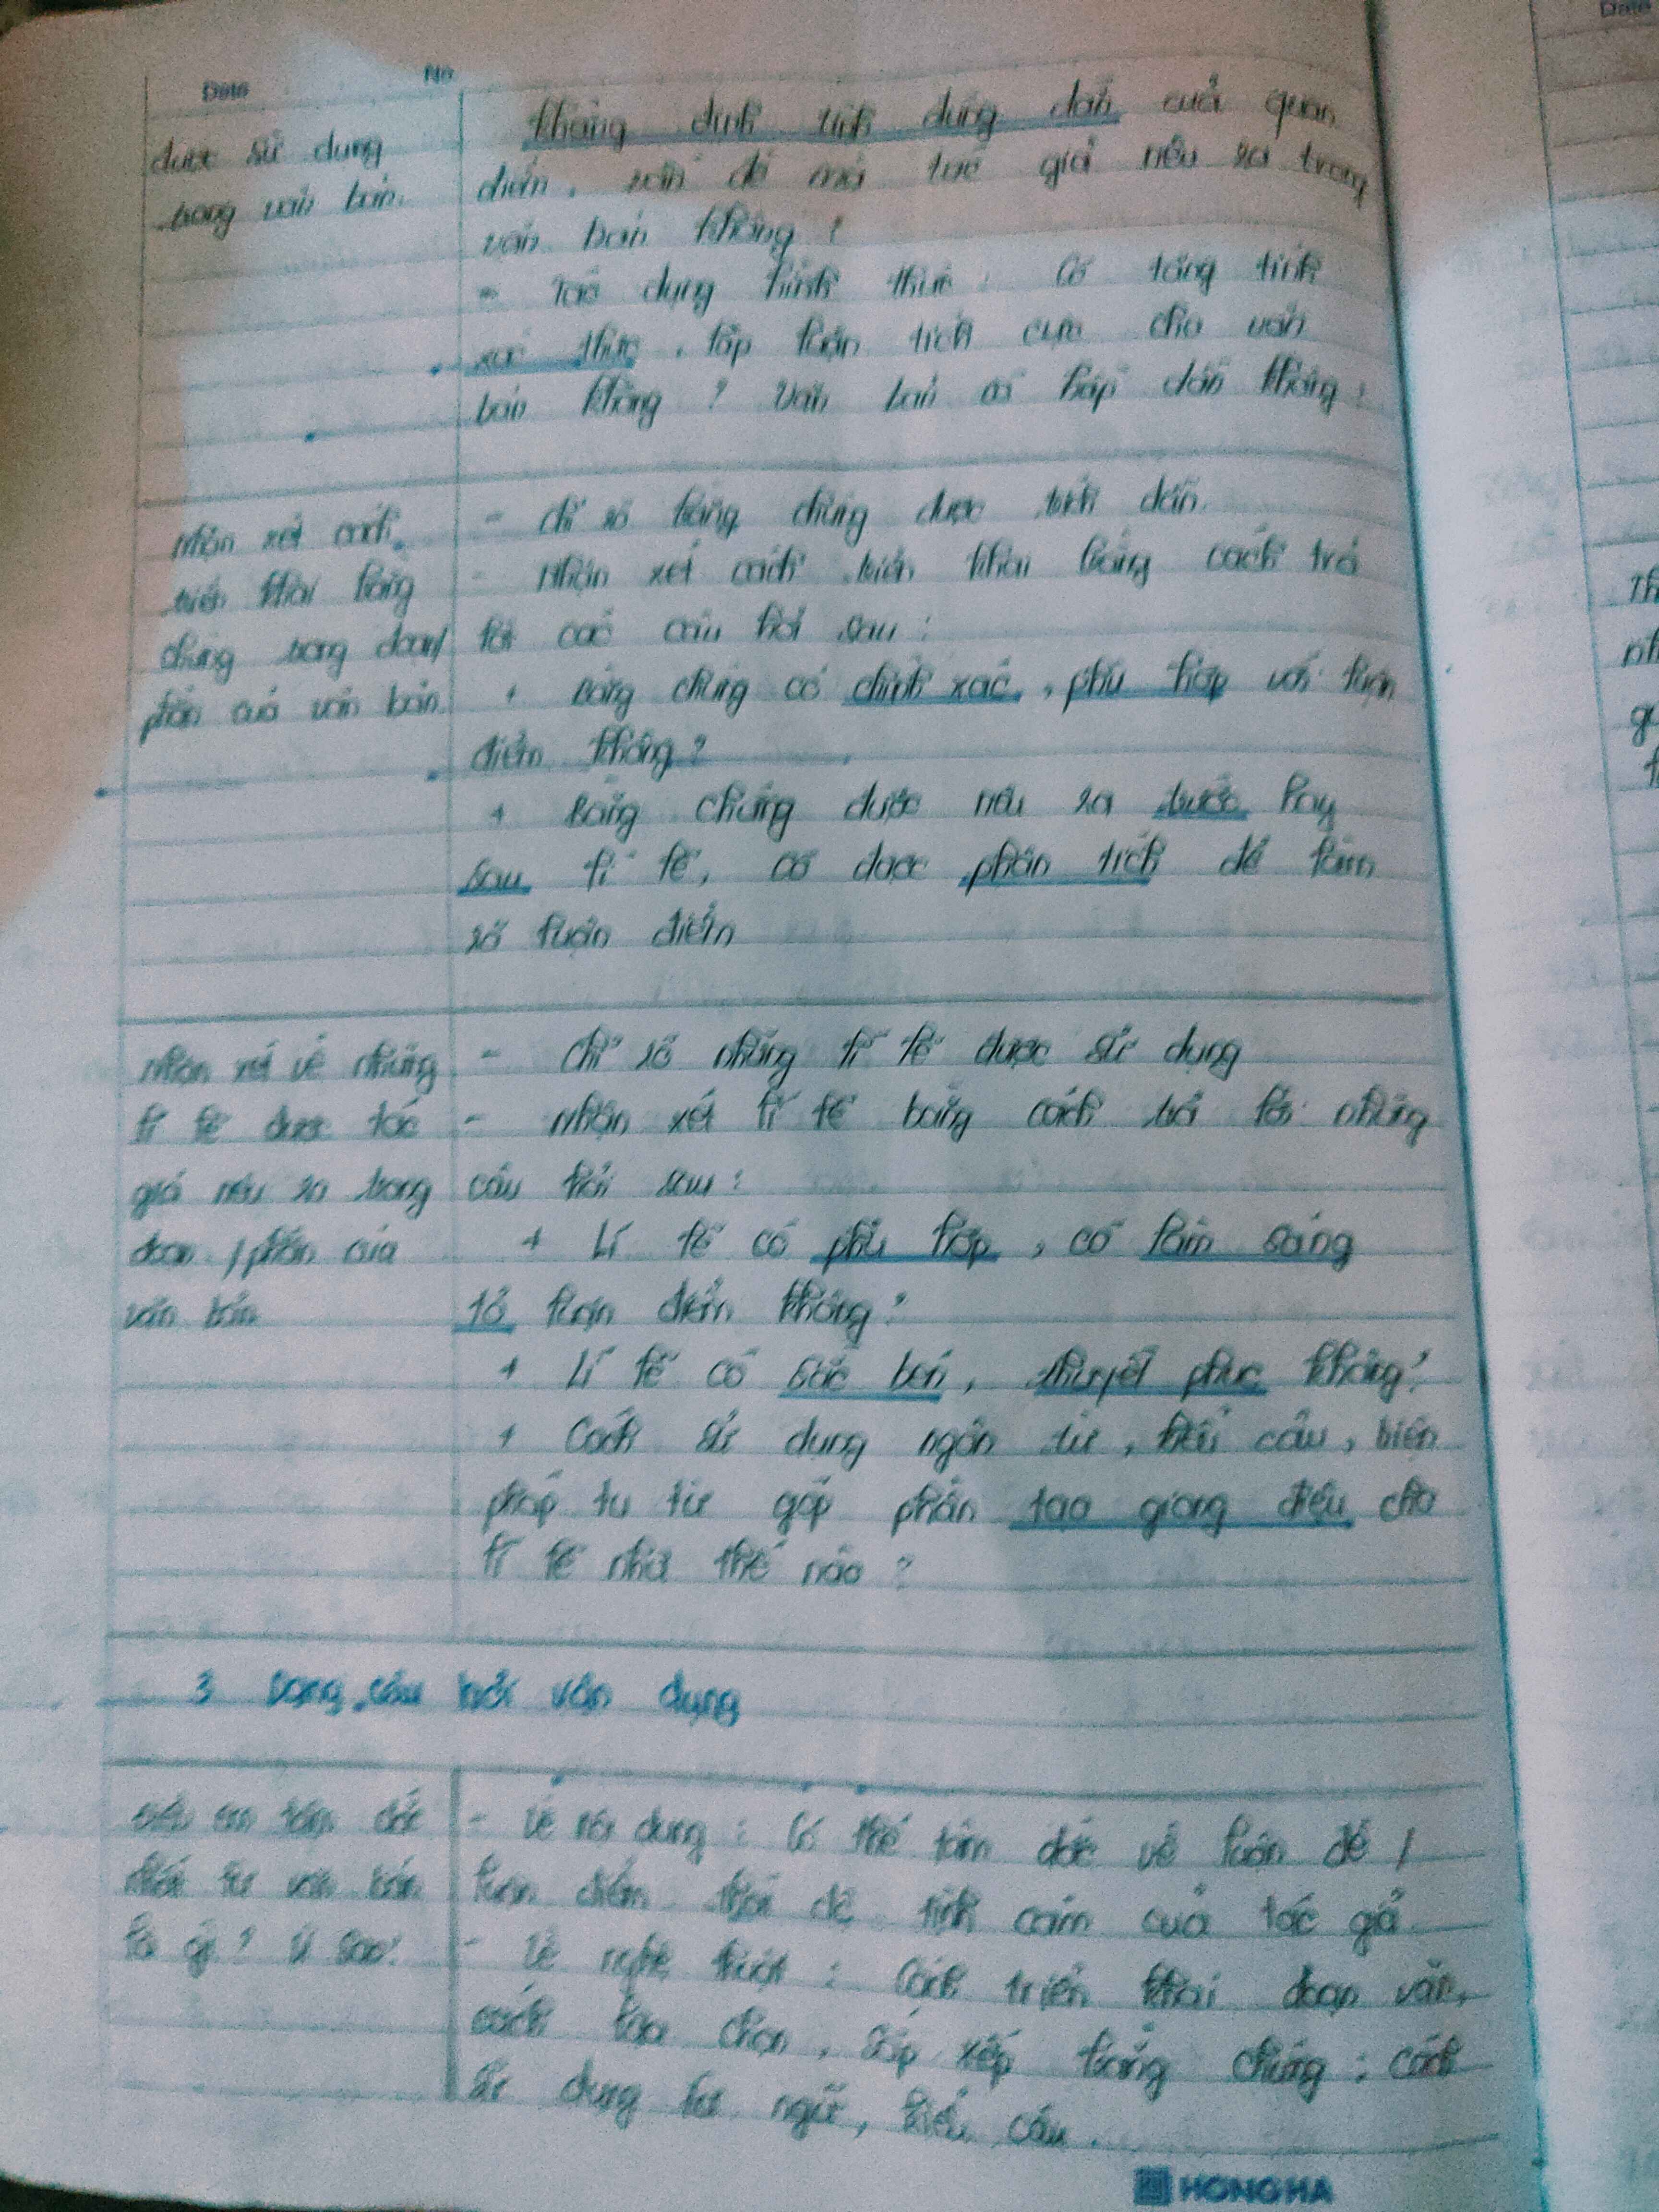 Date No
được sử dụng
trong văn bản.
khẳng định tính đúng đắn của quan
điểm, vấn đề mà tác giả nêu ra trong
văn bản không?
- Tác dụng hình thức: Có tăng tính
xác thực, lập luận tích cực cho văn
bản không? Văn bản có hấp dẫn không?
Nhận xét cách
triển khai bằng
chứng trong đoạn/
phần của văn bản.
- Chỉ rõ bằng chứng được trích dẫn.
- Nhận xét cách triển khai bằng cách trả
lời các câu hỏi sau:
+ Bằng chứng có chính xác, phù hợp với luận
điểm không?
+ Bằng chứng được nêu ra trước hay
sau lí lẽ, có được phân tích để làm
rõ luận điểm
Nhận xét về những
lí lẽ được tác
giả nêu ra trong
đoạn / phần của
văn bản
- Chỉ rõ những lí lẽ được sử dụng
- Nhận xét lí lẽ bằng cách trả lời những
câu hỏi sau:
+ Lí lẽ có phù hợp, có làm sáng
tỏ luận điểm không?
+ Lí lẽ có sắc bén, thuyết phục không?
+ Cách sử dụng ngôn từ, kiểu câu, biện
pháp tu từ góp phần tạo giọng điệu cho
lí lẽ như thế nào?
3 Dạng câu hỏi vận dụng
Điều em tâm đắc
nhất từ văn bản
là gì? Vì sao?
- Về nội dung: Có thể tâm đắc về luận đề /
luận điểm thái độ tình cảm của tác giả
- Về nghệ thuật: Cách triển khai đoạn văn,
cách lựa chọn, sắp xếp bằng chứng; cách
sử dụng từ ngữ, kiểu câu.
HONG HA
Date